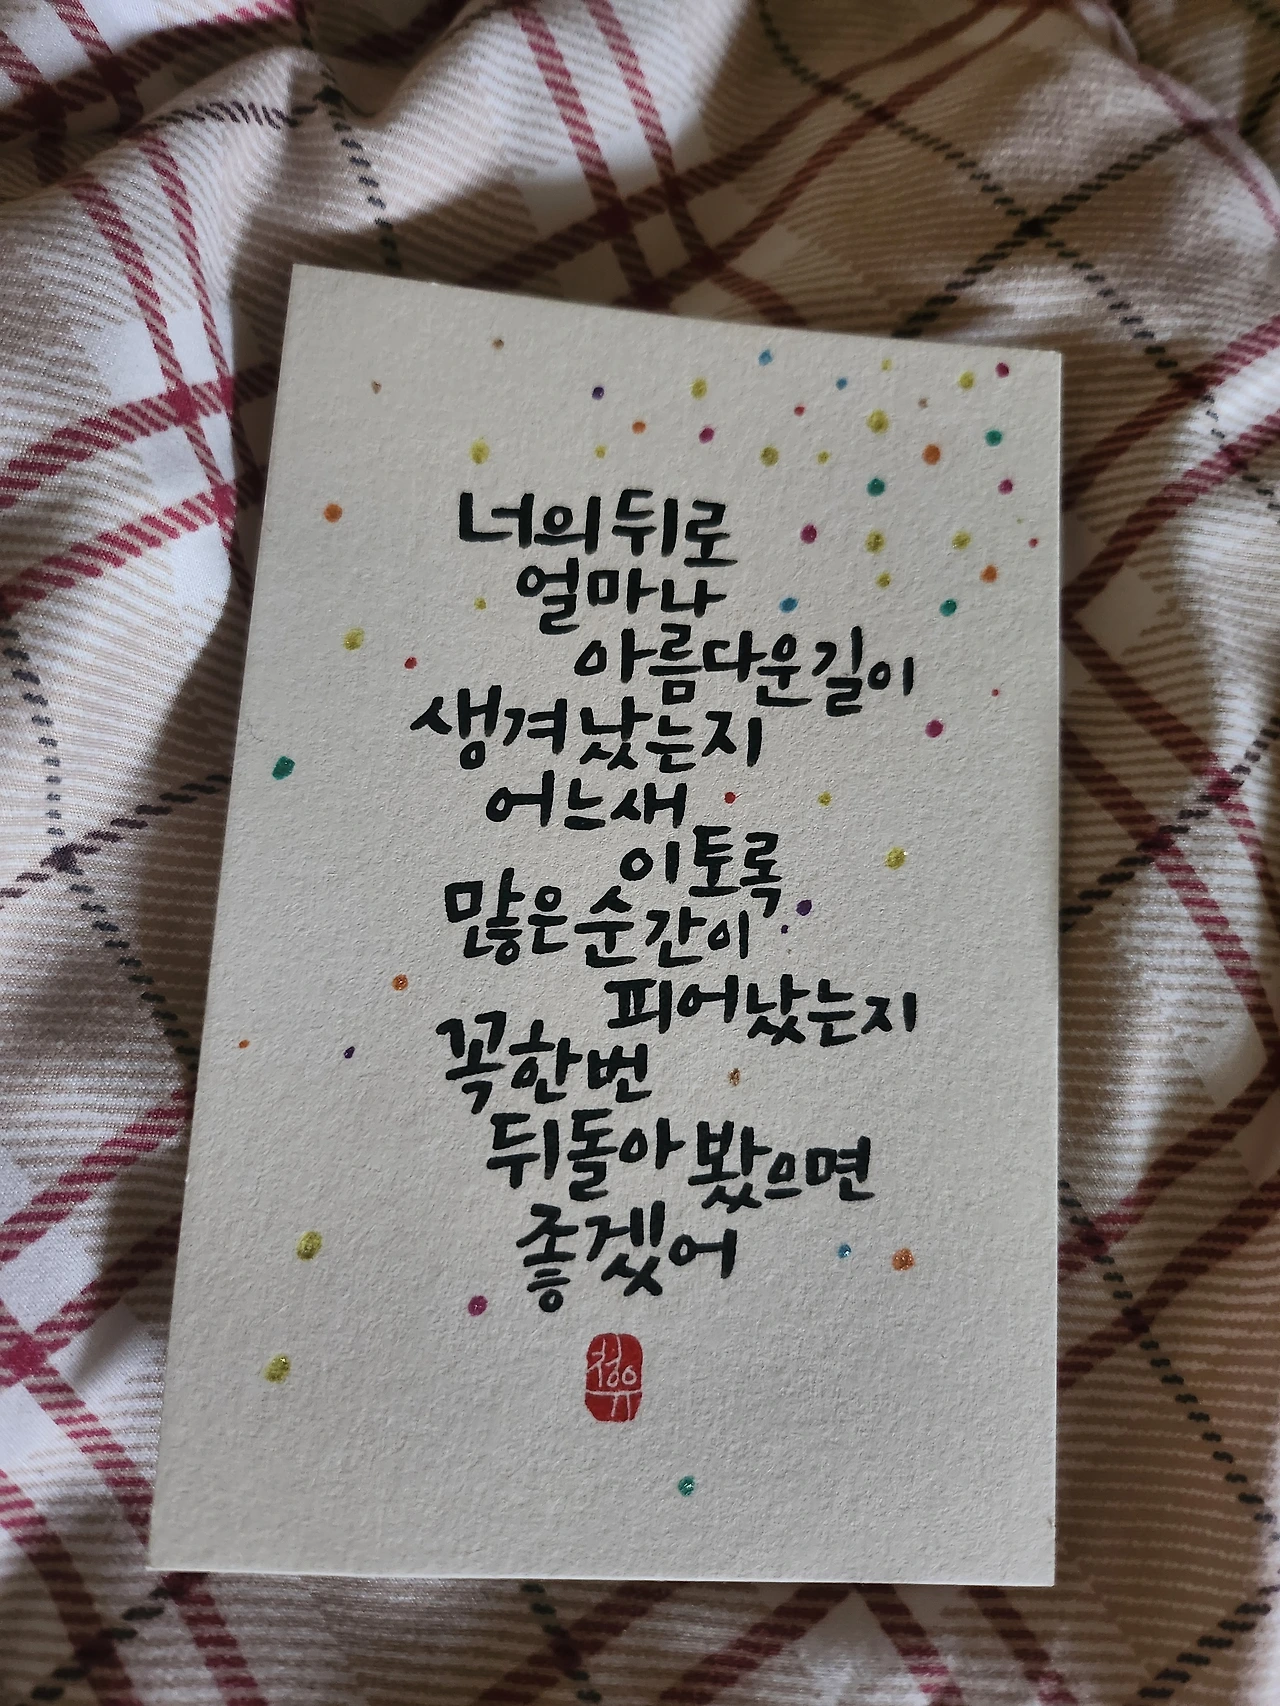 너의 뒤로
얼마나
아름다운 길이
생겨났는지
어느새
이토록
많은 순간이
피어났는지
꼭 한번
뒤돌아 봤으면
좋겠어
청유